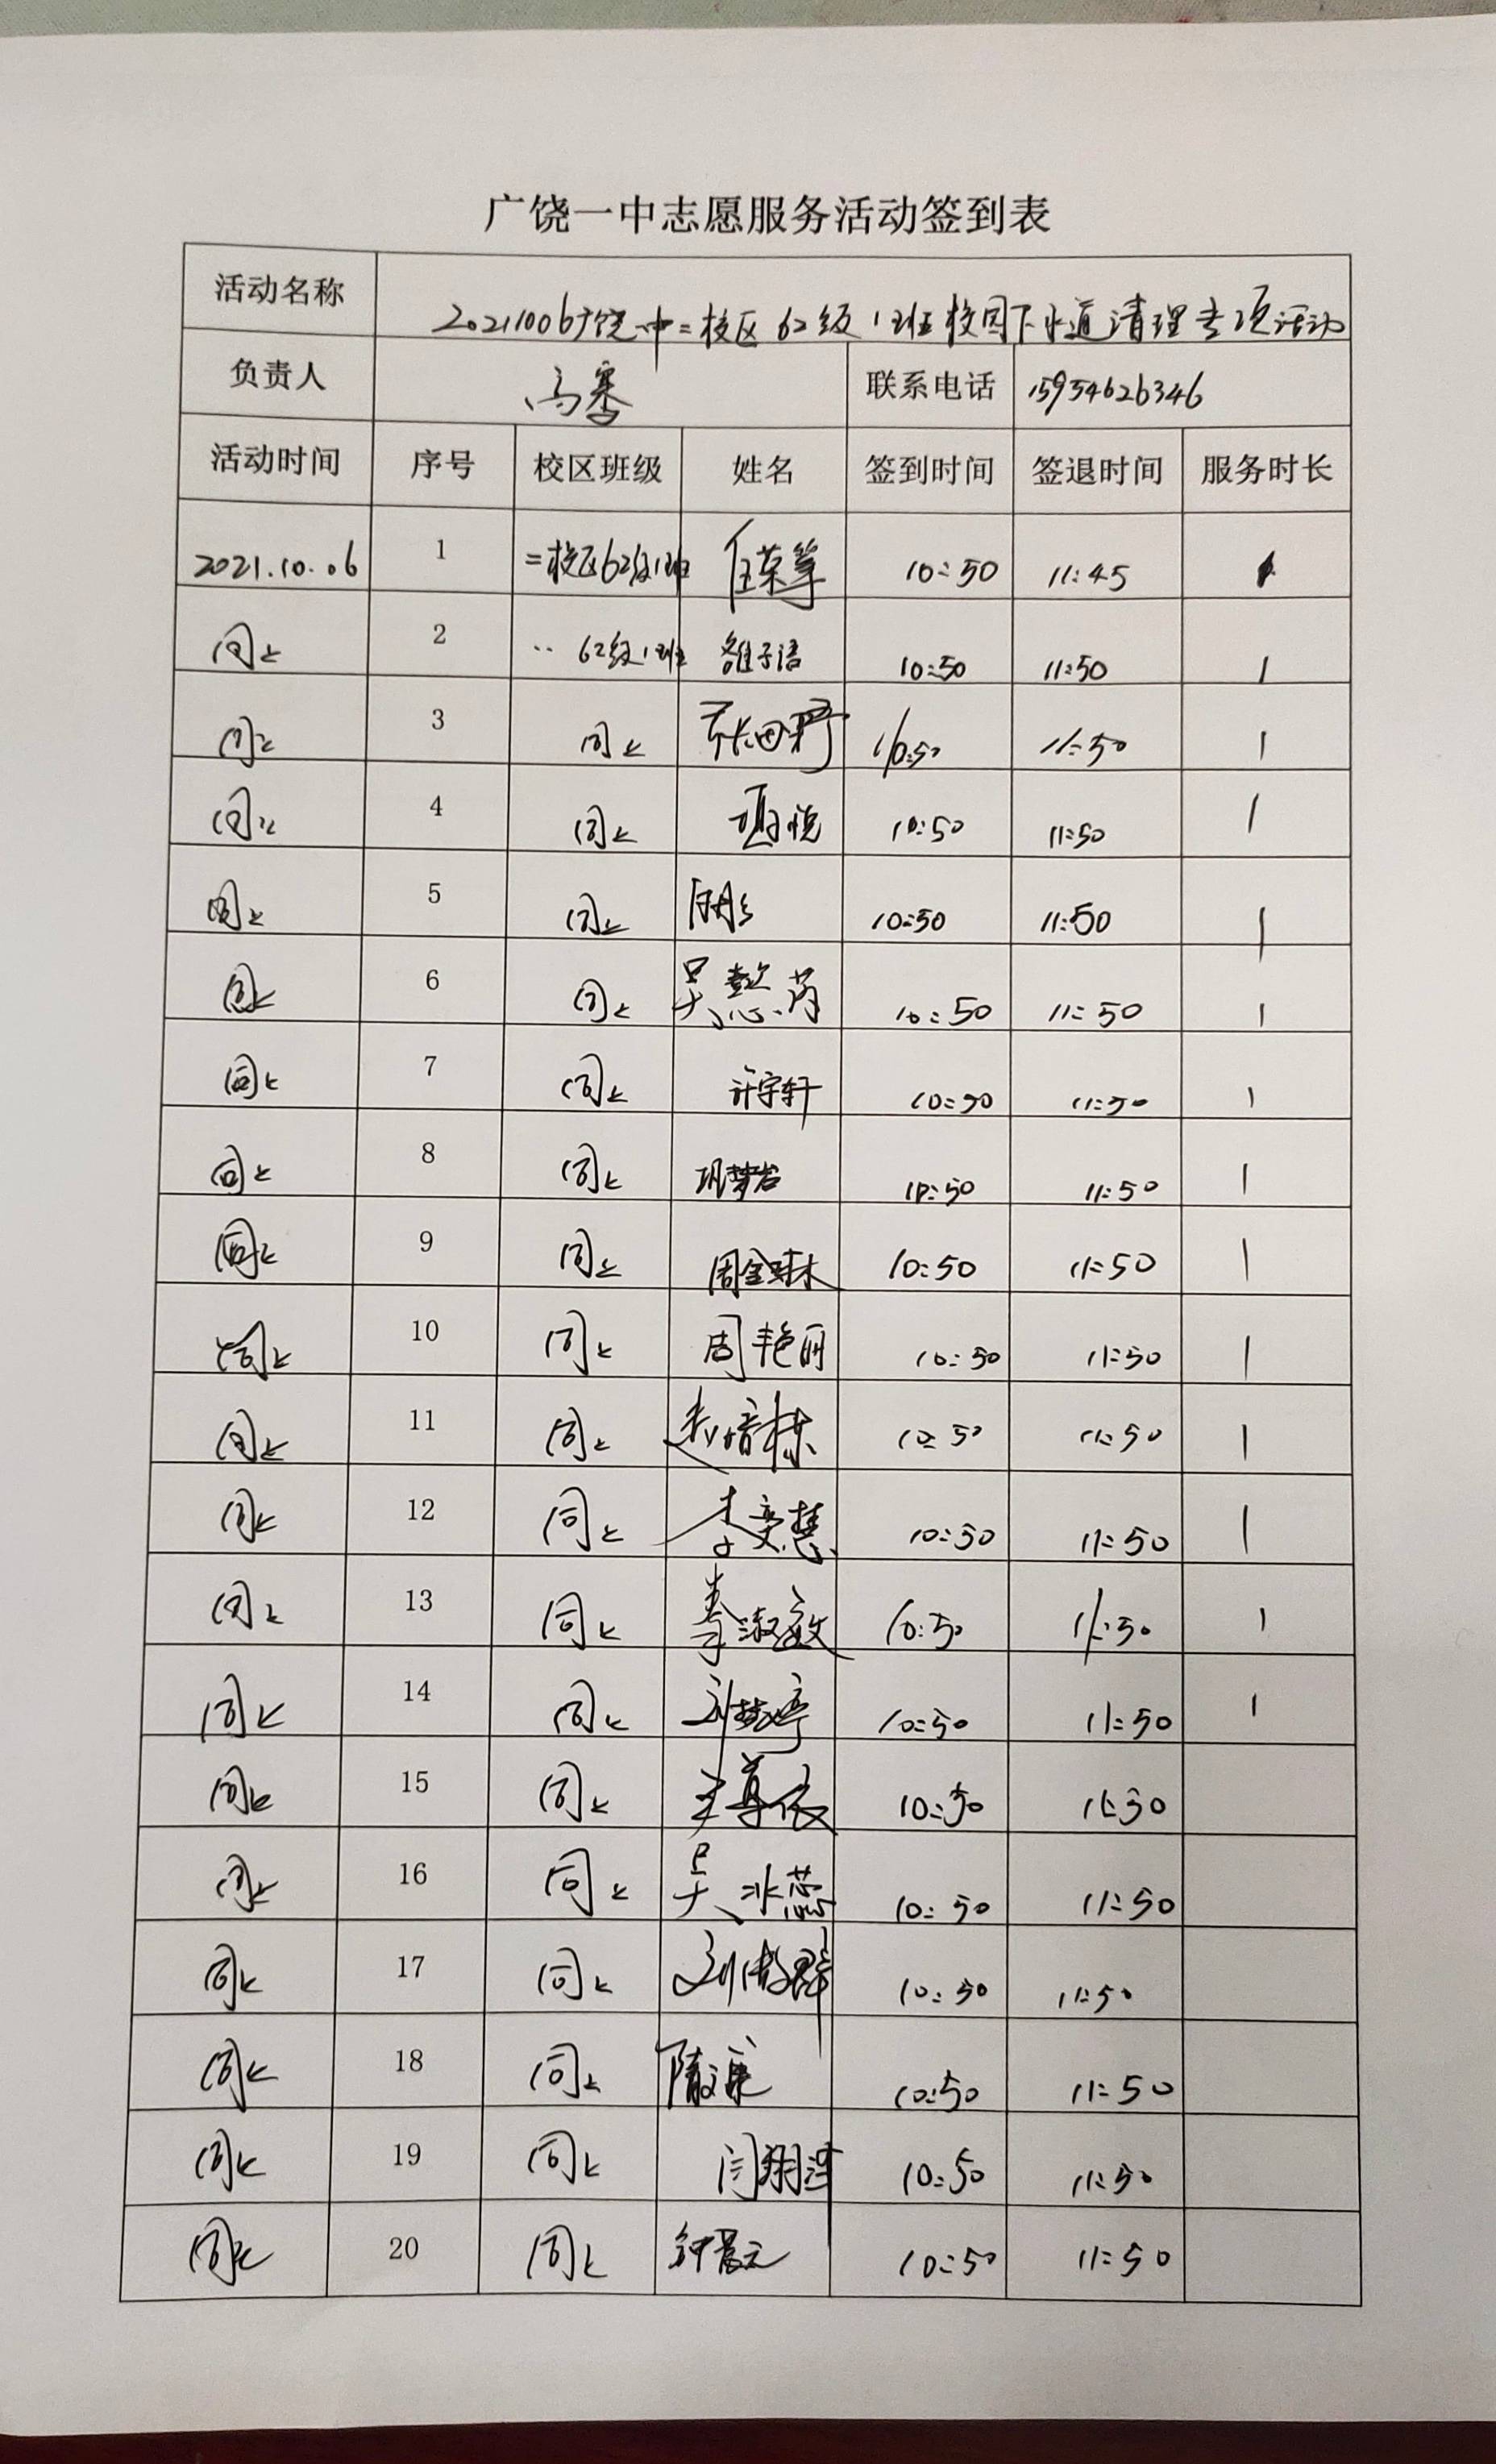 广饶一中志愿服务活动签到表
活动名称 20211006广饶一中二校区62级1班校园下水道清理专项活动
负责人 冯寨 联系电话 15954626346
活动时间 序号 校区班级 姓名 签到时间 签退时间 服务时长
2021.10.06 1 二校区62级1班 任荣筝 10:50 11:45 1
同上 2 ·· 62级1班 雒子语 10:50 11:50 1
同上 3 同上 10:50 11:50 1
同上 4 同上 10:50 11:50 1
同上 5 同上 10:50 11:50 1
同上 6 同上 吴懿芮 10:50 11:50 1
同上 7 同上 许宇轩 10:50 11:50 1
同上 8 同上 巩梦岩 10:50 11:50 1
同上 9 同上 周金 10:50 11:50 1
同上 10 同上 周艳丽 10:50 11:50 1
同上 11 同上 10:50 11:50 1
同上 12 同上 李奕慧 10:50 11:50 1
同上 13 同上 李淑敏 10:50 11:50 1
同上 14 同上 刘梦婷 10:50 11:50 1
同上 15 同上 王尊依 10:50 11:50
同上 16 同上 吴冰蕊 10:50 11:50
同上 17 同上 刘 10:50 11:50
同上 18 同上 隋 10:50 11:50
同上 19 同上 闫翔泽 10:50 11:50
同上 20 同上 钟晨元 10:50 11:50